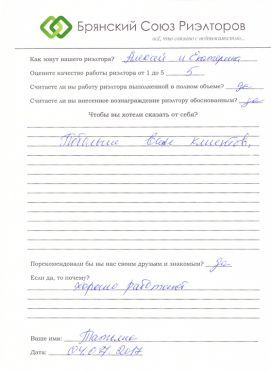 Брянский Союз Риэлторов
всё, что связано с недвижимостью...
Как зовут нашего риэлтора? Алексей и Екатерина
Оцените качество работы риэлтора от 1 до 5 5
Считаете ли вы работу риэлтора выполненной в полном объеме? да
Считаете ли вы внесенное вознаграждение риэлтору обоснованным? да
Чтобы вы хотели сказать от себя?
Побольше Вам клиентов,
Порекомендовали бы вы нас своим друзьям и знакомым? да
Если да, то почему?
хорошо работают
Ваше имя: Татьяна
Дата: 04.07.2017